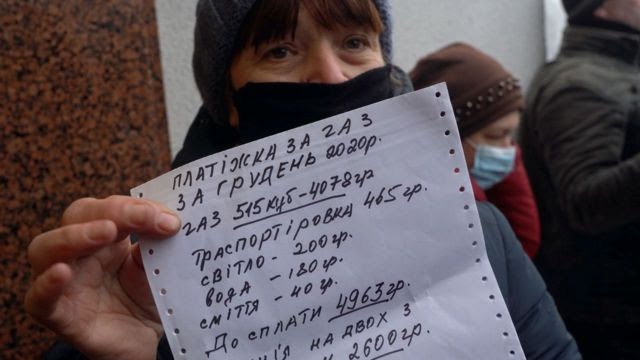 ПЛАТІЖКА ЗА ГАЗ
ЗА ГРУДЕНЬ 2020р.
ГАЗ 515 куб - 4078гр
ТРАСПОРТІРОВКА 465гр.
СВІТЛО - 200гр.
ВОДА - 180гр.
СМІТТЯ - 40гр.
ДО СПЛАТИ 4963гр.
НА ДВОХ З
2600гр.